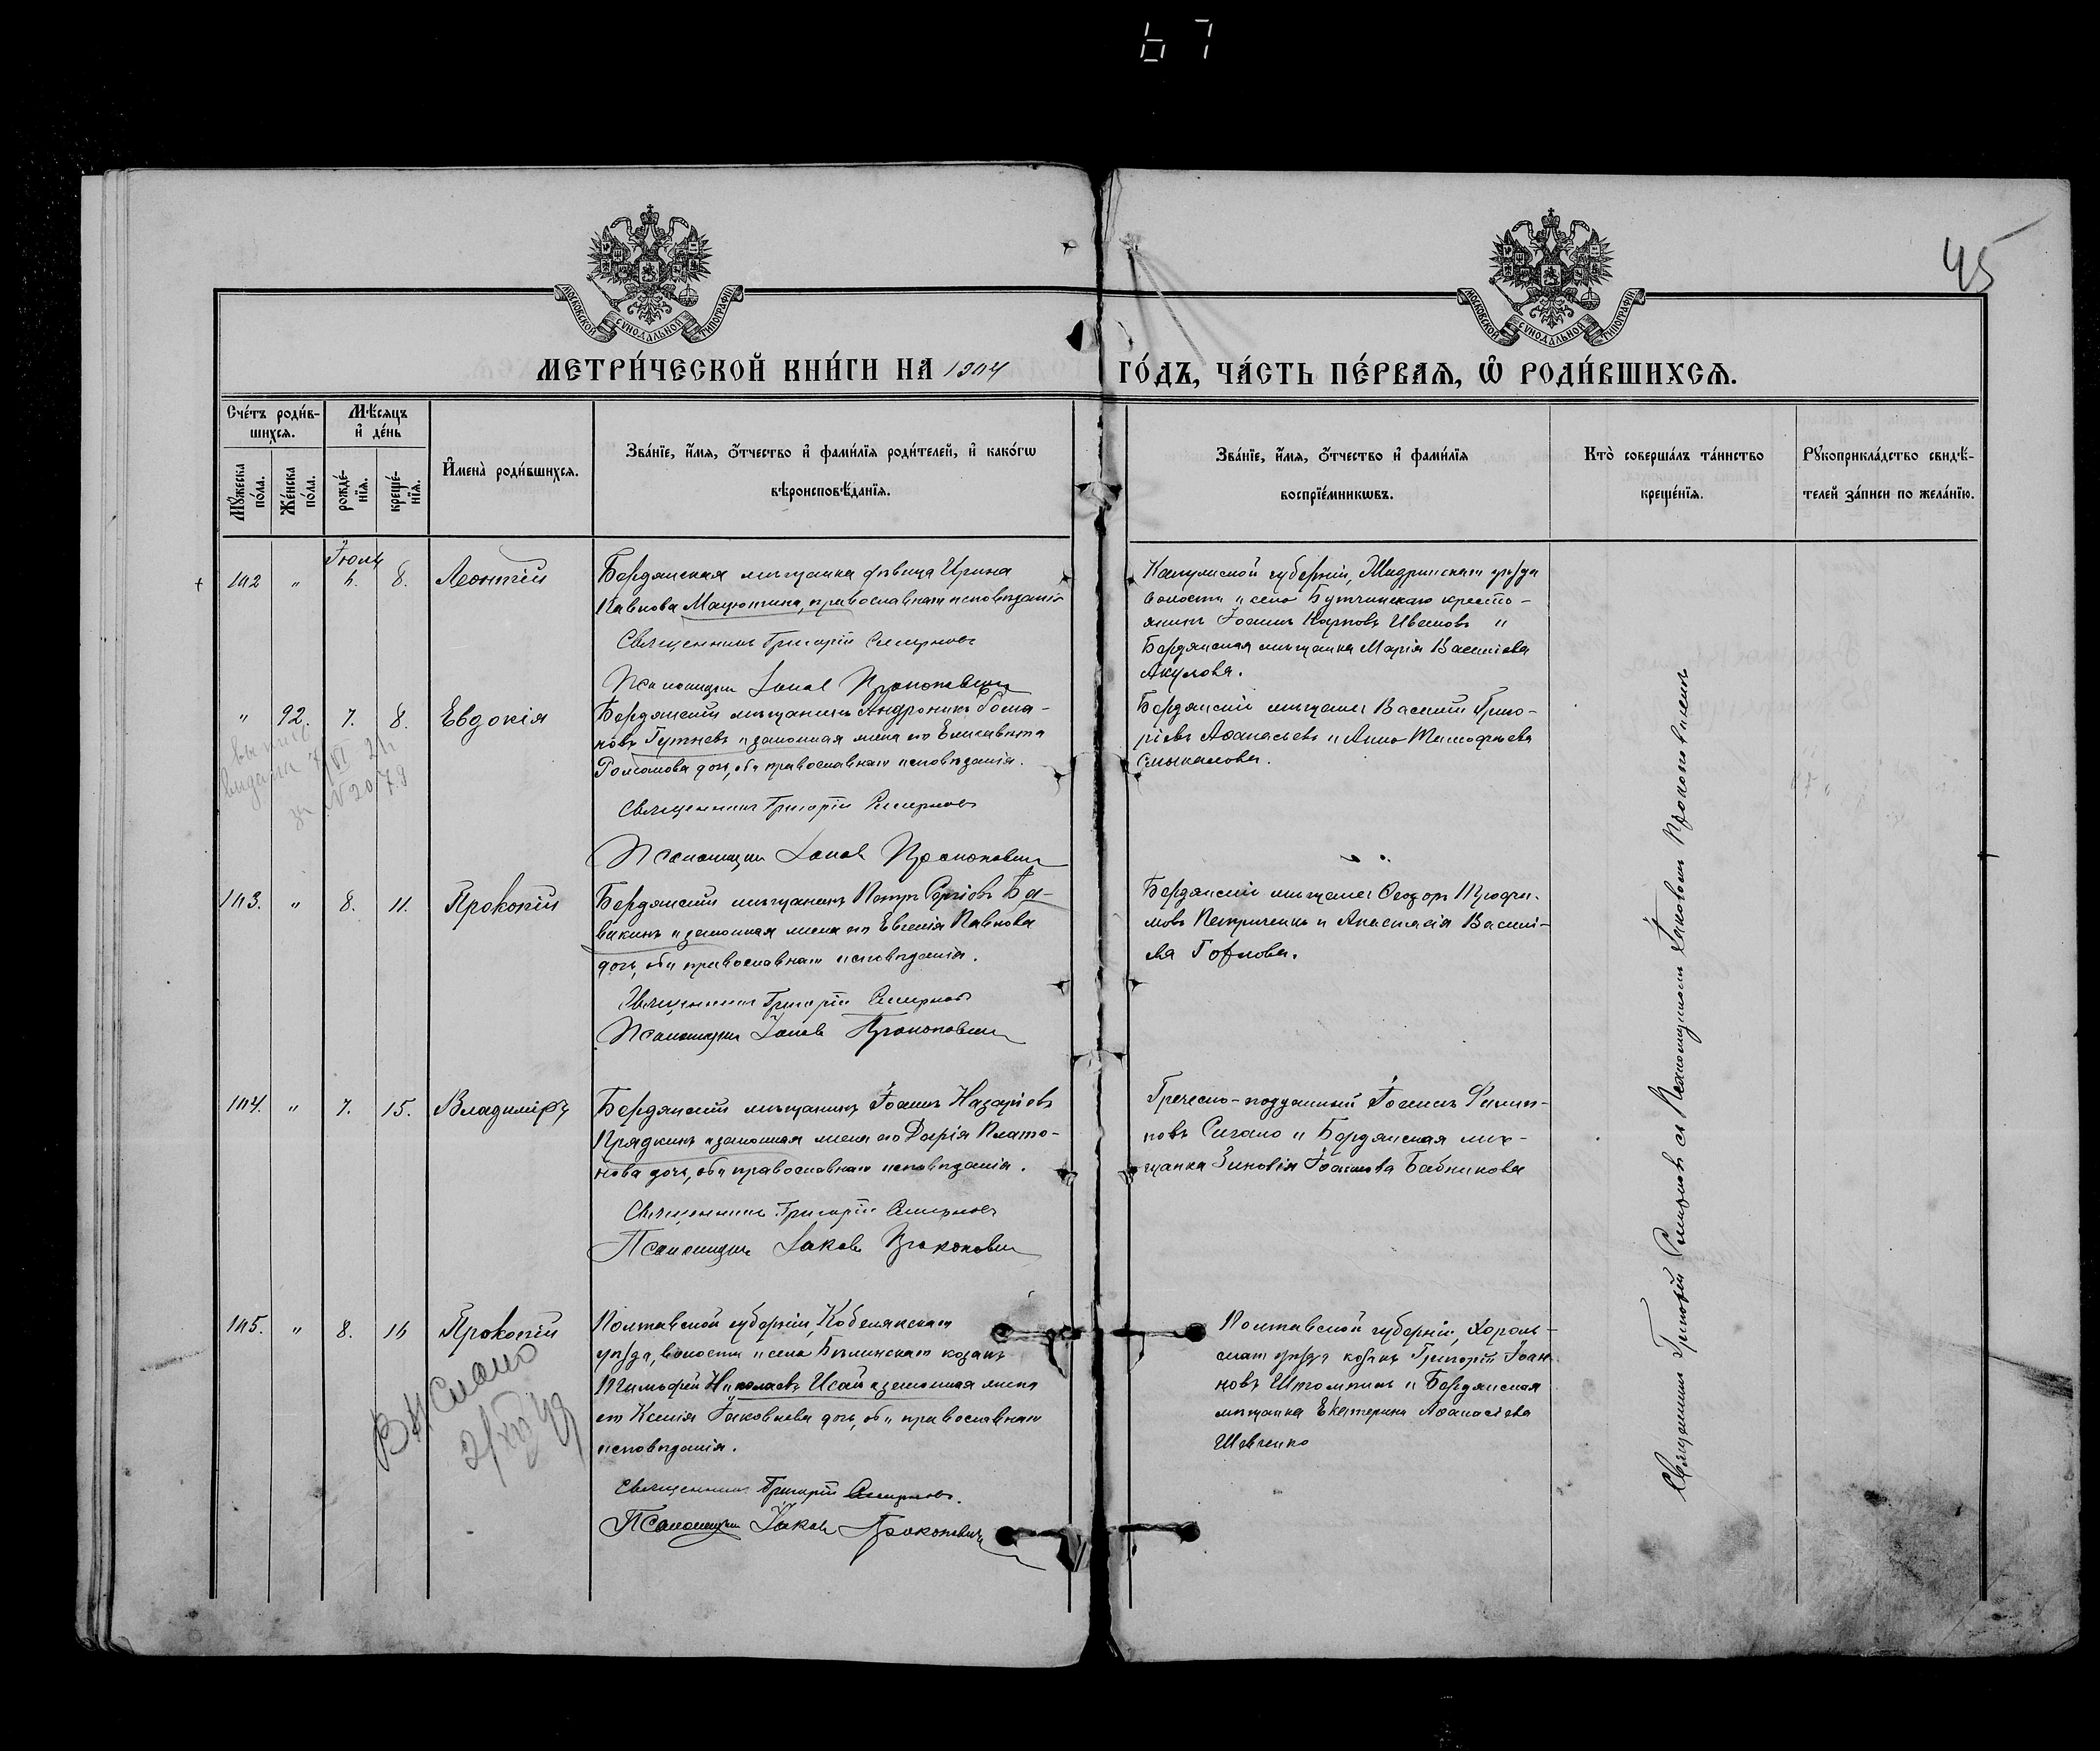 67
45
МОСКОВСКОЙ СѴНОДАЛЬНОЙ ТИПОГРАФІИ
МОСКОВСКОЙ СѴНОДАЛЬНОЙ ТИПОГРАФІИ
МЕТРИ́ЧЕСКОЙ КНИ́ГИ НА 1904
ГО́ДЪ, ЧА́СТЬ ПЕ́РВАѦ, Ѽ РОДИ́ВШИХСѦ.
Сче́тъ роди́в-
шихсѧ.
Мѣ́сѧцъ
и҆ де́нь
Мꙋ́жеска
по́ла.
Же́нска
по́ла.
рожде́-
нїѧ.
креще́-
нїѧ.
И҆мена̀ роди́вшихсѧ.
Зва́нїе, и҆́мѧ, ѻ҆́тчество и҆ фами́лїѧ роди́телей, и҆ како́гѡ
вѣроисповѣ́данїѧ.
Зва́нїе, и҆́мѧ, ѻ҆́тчество и҆ фами́лїѧ
воспрїе́мникѡвъ.
Кто̀ соверша́лъ та́инство
креще́нїѧ.
Рꙋкоприкла́дство свидѣ́-
телей за́писи по жела́нїю.
Іюль
102 " 6. 8. Леонтій
Бердянская мѣщанка дѣвица Ирина
Павлова Мацютина, православнаго исповѣданія
Священникъ Григорій Смирновъ
Псаломщикъ Іаковъ Прокоповичъ
Калужской губерніи, Жиздринскаго уѣзда
волости и села Бутчинскаго кресть-
янинъ Іоаннъ Карповъ Ивановъ и
Бердянская мѣщанка Марія Василіева
Акулова.
" 92. 7. 8. Евдокія
Бердянскій мѣщанинъ Андроникъ Рома-
новъ Гутневъ и законная жена его Елисавета
Романова дочь, оба православнаго исповѣданія.
Священникъ Григорій Смирновъ
Псаломщикъ Іаковъ Прокоповичъ
Бердянскіе мѣщане Василій Григо-
ріевъ Аѳанасьевъ и Анна Тимофѣева
Смыкалова.
выпись
выдана 7/VI 21
за N 2079
103. " 8. 11. Прокопій
Бердянскій мѣщанинъ Петръ Сергіевъ Ба-
вакинъ и законная жена его Евгенія Павлова
дочь, оба православнаго исповѣданія.
Священникъ Григорій Смирновъ
Псаломщикъ Іаковъ Прокоповичъ
Бердянскіе мѣщане Ѳеодоръ Трофи-
мовъ Петриченко и Анастасія Василі-
ева Горлова.
104. " 7. 15. Владиміръ
Бердянскій мѣщанинъ Іоаннъ Назаріевъ
Прядкинъ и законная жена его Дарія Плато-
нова дочь, оба православнаго исповѣданія.
Священникъ Григорій Смирновъ
Псаломщикъ Іаковъ Прокоповичъ
Греческо-подданный Іоаннъ Филип-
повъ Сигано и Бердянская мѣ-
щанка Зиновія Іоаннова Бабникова
105. " 8. 16 Прокопій
Полтавской губерніи, Кобелякскаго
уѣзда, волости и села Бѣлинскаго козакъ
Тимофей Николаевъ Исай и законная жена
его Ксенія Іаковлева дочь, оба православнаго
исповѣданія.
Священникъ Григорій Смирновъ.
Псаломщикъ Іаковъ Прокоповичъ
Полтавской губерніи, Хороль-
скаго уѣзда козакъ Григорій Іоан-
новъ Штомпинъ и Бердянская
мѣщанка Екатерина Аѳанасіева
Шевченко
Священникъ Григорій Смирновъ съ Псаломщикомъ Іаковомъ Прокоповичемъ